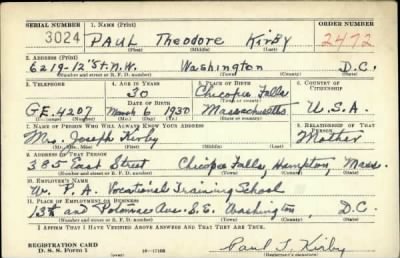 SERIAL NUMBER 1. NAME (Print) ORDER NUMBER
3024 PAUL Theodore Kirby 2472
(First) (Middle) (Last)
2. ADDRESS (Print)
6219-12 St. N.W. Washington D.C.
(Number and street or R. F. D. number) (Town) (County) (State)
3. TELEPHONE 4. AGE IN YEARS 5. PLACE OF BIRTH 6. COUNTRY OF CITIZENSHIP
30 Chicopee Falls
DATE OF BIRTH (Town or county)
GE. 4207 March 6 1930 Massachusetts U.S.A.
(Exchange) (Number) (Mo.) (Day) (Yr.) (State or country)
7. NAME OF PERSON WHO WILL ALWAYS KNOW YOUR ADDRESS 8. RELATIONSHIP OF THAT PERSON
Mrs. Joseph Kirby Mother
(Mr., Mrs., Miss) (First) (Middle) (Last)
9. ADDRESS OF THAT PERSON
385 East Street Chicopee Falls, Hampton, Mass.
(Number and street or R. F. D. number) (Town) (County) (State)
10. EMPLOYER'S NAME
W. P. A. Vocational Training School
11. PLACE OF EMPLOYMENT OR BUSINESS
13th and Potomac Ave. S.E. Washington, D.C.
(Number and street or R. F. D. number) (Town) (County) (State)
I AFFIRM THAT I HAVE VERIFIED ABOVE ANSWERS AND THAT THEY ARE TRUE.
REGISTRATION CARD
D. S. S. Form 1 16-17105 Paul T. Kirby
(Registrant's signature)